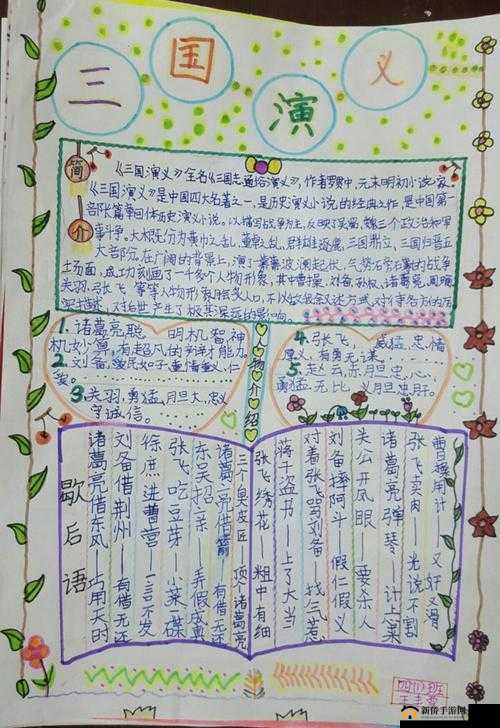 三国演义
简介
《三国演义》全名《三国志通俗演义》,作者罗贯中,元末明初小说家。
《三国演义》是中国四大名著之一,是历史演义小说的经典之作,是中国第一
部长篇章回体历史演义小说。以描写战争为主,反映了吴蜀、魏三个政治和军
事斗争。大概分为黄巾之乱、董卓之乱、群雄逐鹿、三国鼎立、三国归晋五
大部分。在广阔的背景上,演了一幕幕波澜起伏、气势磅礴的战争
场面,成功刻画了一千多个人物形象,其中曹操、刘备、孙权、诸葛亮、周瑜
关羽、张飞等人物形象脍炙人口,
对后世产生了极其深远的影响。
人物介绍
1.诸葛亮,聪明机智,神
机妙算,有超凡的判断能力。
2.刘备,爱民如子,重情重义,仁
3.关羽,勇猛,肝胆大,忠义
守诚信。
4.张飞,威猛,忠情
厚义,有勇无谋。
5.赵云,赤胆忠心,
勇猛无比,义胆忠肝。
歇后语
诸葛亮借东风——巧用天时
刘备借荆州——有借无还
徐庶进曹营——言不发
张飞吃豆芽——小菜一碟
东吴招亲——弄假成真
诸葛亮借箭——有借无还
三个臭皮匠——顶个诸葛亮
张飞绣花——粗中有细
蒋干盗书——上了大当
对着张飞骂刘备——找气惹
刘备摔阿斗——假仁假义
关公开凤眼——要杀人
诸葛亮弹琴——计上来
张飞卖肉——光说不割
曹操用计——又奸又滑
四(1)班
新侨手游网